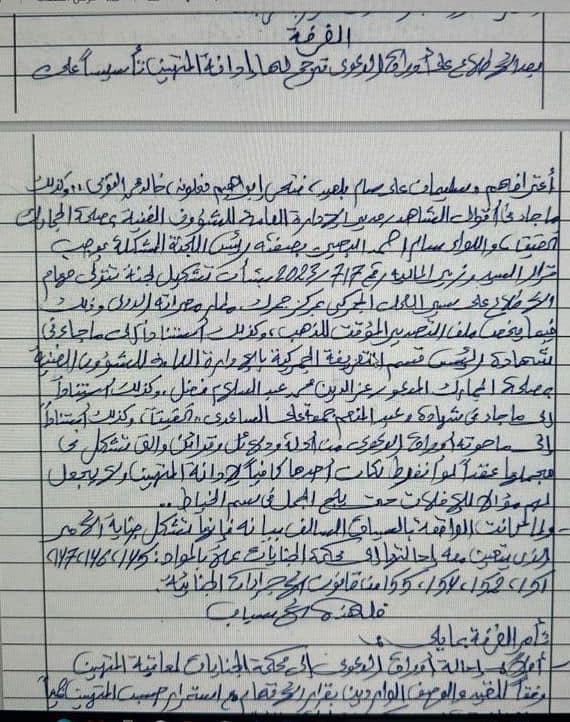 الغرفة
بعد الاطلاع على أوراق الدعوى ترجح لها إدانة المتهمين تأسيساً على
أعترافهم وسليمان علي سالم بلعيد، فتحي إبراهيم ... خالد ... وكذلك
ما جاء في أقوال الشاهد مدير الإدارة العامة للشؤون الفنية بمصلحة الجمارك
... واللواء سالم احمد البصير بصفته رئيس اللجنة المشكلة بموجب
قرار السيد وزير المالية رقم 717/2023 بشأن تشكيل لجنة تتولى مهام
والاطلاع على سير العمل الجمركي بمركز جمرك مطار مصراتة الدولي وذلك
فيما يخص ملف التصدير المؤقت للذهب، وكذلك أستناداً إلى ما جاء في
شهادة رئيس قسم التعريفة الجمركية بالإدارة العامة للشؤون الفنية
بمصلحة الجمارك المدعو/ عز الدين محمد عبد السلام فضل، وكذلك استناداً
إلى ما جاء في شهادة وعبد المنعم جمعة علي الساعدي، ... وكذلك إستناداً
إلى ما حوته أوراق الدعوى من أدلة ودلائل وقرائن والتي تشكل في
مجملها عقداً لو أنفرط لكان أحدها كافياً لإدانة المتهمين ولا يجعل
لهم مؤلاً للإفلات حتى يلج الجمل في سم الخياط..
- ولما كانت الواقعة بالسياق السالف بيانه فإنها تشكل جناية الأمر
الذي يتعين معه إحالتها إلى محكمة الجنايات عملاً بالمواد: 145، 146، 147،
151، 152، 154، 155 من قانون الإجراءات الجنائية.
فلهذه الأسباب
تأمر الغرفة بما يلي:
- أولاً: إحالة أوراق الدعوى إلى محكمة الجنايات لمعاقبة المتهمين
وفقاً للقيد والوصف الواردين بقرار الاتهام مع استمرار حبس المتهمين